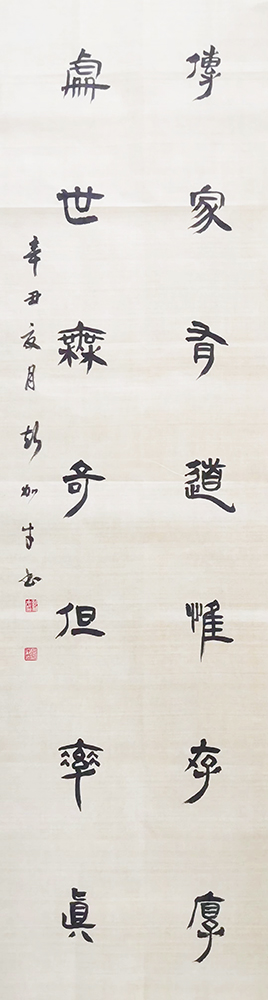 傳家有道惟存厚
處世無奇但率真
辛丑夏月彭加本书